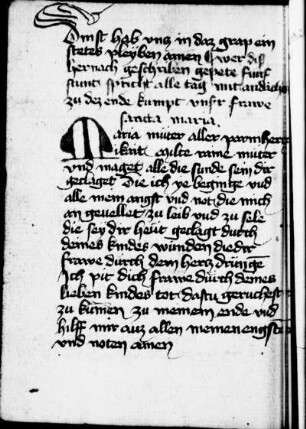 Du mst hab vnz in daz grap ein
stetes pleyben amen Swer dis
hernach geschriben gepete funf
stunt spricht alle tag mit andacht
zu dez ende kumpt vnser frawe
sancta maria.
Maria muter aller parmhertz
ikait milte raine muter
vnd maget alle die sunde sein dir
geclaget Die ich ye begingе vnd
alle mein angst vnd not die mich
an gevellet zu leib vnd zu sele
die sey dir heut geclagt durch
deines kindes wunden die dir
frawe durch dein hercz dringe
Ich pit dich frawe durch deines
lieben kindes tot dastu geruchest
zu kumen zu meinem ende vnd
hilff mir auz allen meinen engsten
vnd noten amen